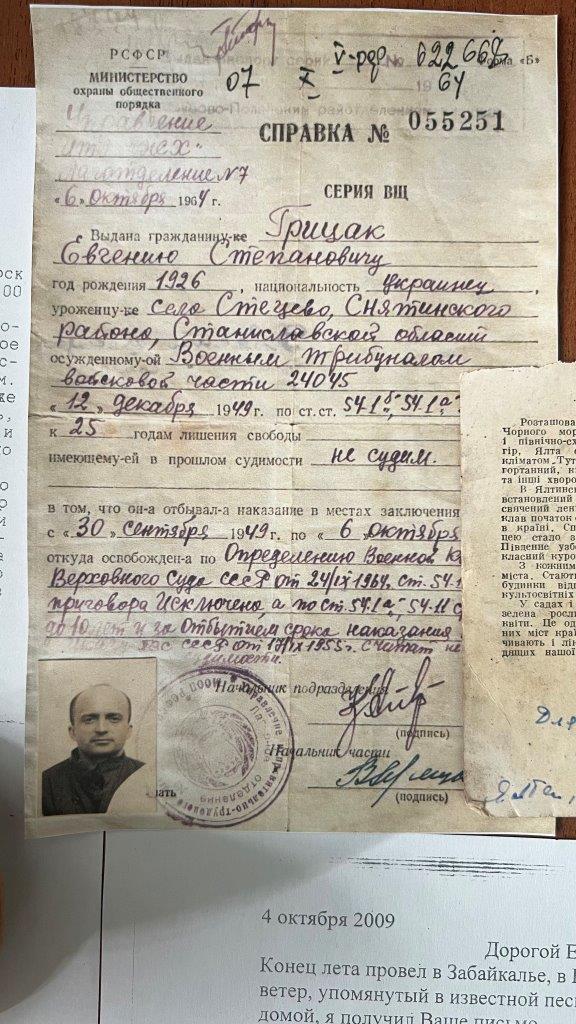 РСФСР
МИНИСТЕРСТВО
охраны общественного
порядка
Управление
Лаготделение №7
«6» октября 1964 г.
07 X 1964
V-рдр № 622668
Форма «Б»
СПРАВКА № 055251
СЕРИЯ ВЩ
Выдана гражданину-ке Грицак
Евгению Степановичу
год рождения 1926, национальность украинец,
уроженцу-ке село Стецево, Снятинского
района, Станиславской области
осужденному-ой Военным трибуналом
войсковой части 24045
«12» декабря 1949 г. по ст. ст. 54-1б, 54-1а
к 25 годам лишения свободы
имеющему-ей в прошлом судимости не судим.
в том, что он-а отбывал-а наказание в местах заключения
с «30» сентября 1949 г. по «6 октября
откуда освобожден-а по Определению Военной К
Верховного Суда СССР от 24/IX 1964. ст. 54-1
приговора Исключено, а по ст. 54-1а, 54-11 с
до 10 лет и за отбытием срока наказания
СССР от 17/IX 1955г. считать не
судимости.
Начальник подразделения
(подпись)
Начальник части
(подпись)
чать
Розташова
Чорного мор
і північно-сх
гір, Ялта
кліматом „Тут
гортанний, к
та інші хворо
В Ялтинсь
встановлений
свячений лени
клав початок
в країні. Сп
цею стало з
Південне узб
класний куро
З кожним
міста. Стают
будинки відп
культосвітніх
У садах і
зелена росли
квіти. Це од
них міст краї
чивають і лік
дящих нашої
Для
Ялта
4 октября 2009
Дорогой Е
Конец лета провел в Забайкалье, в
ветер, упомянутый в известной пес
домой, я получил Ваше письмо